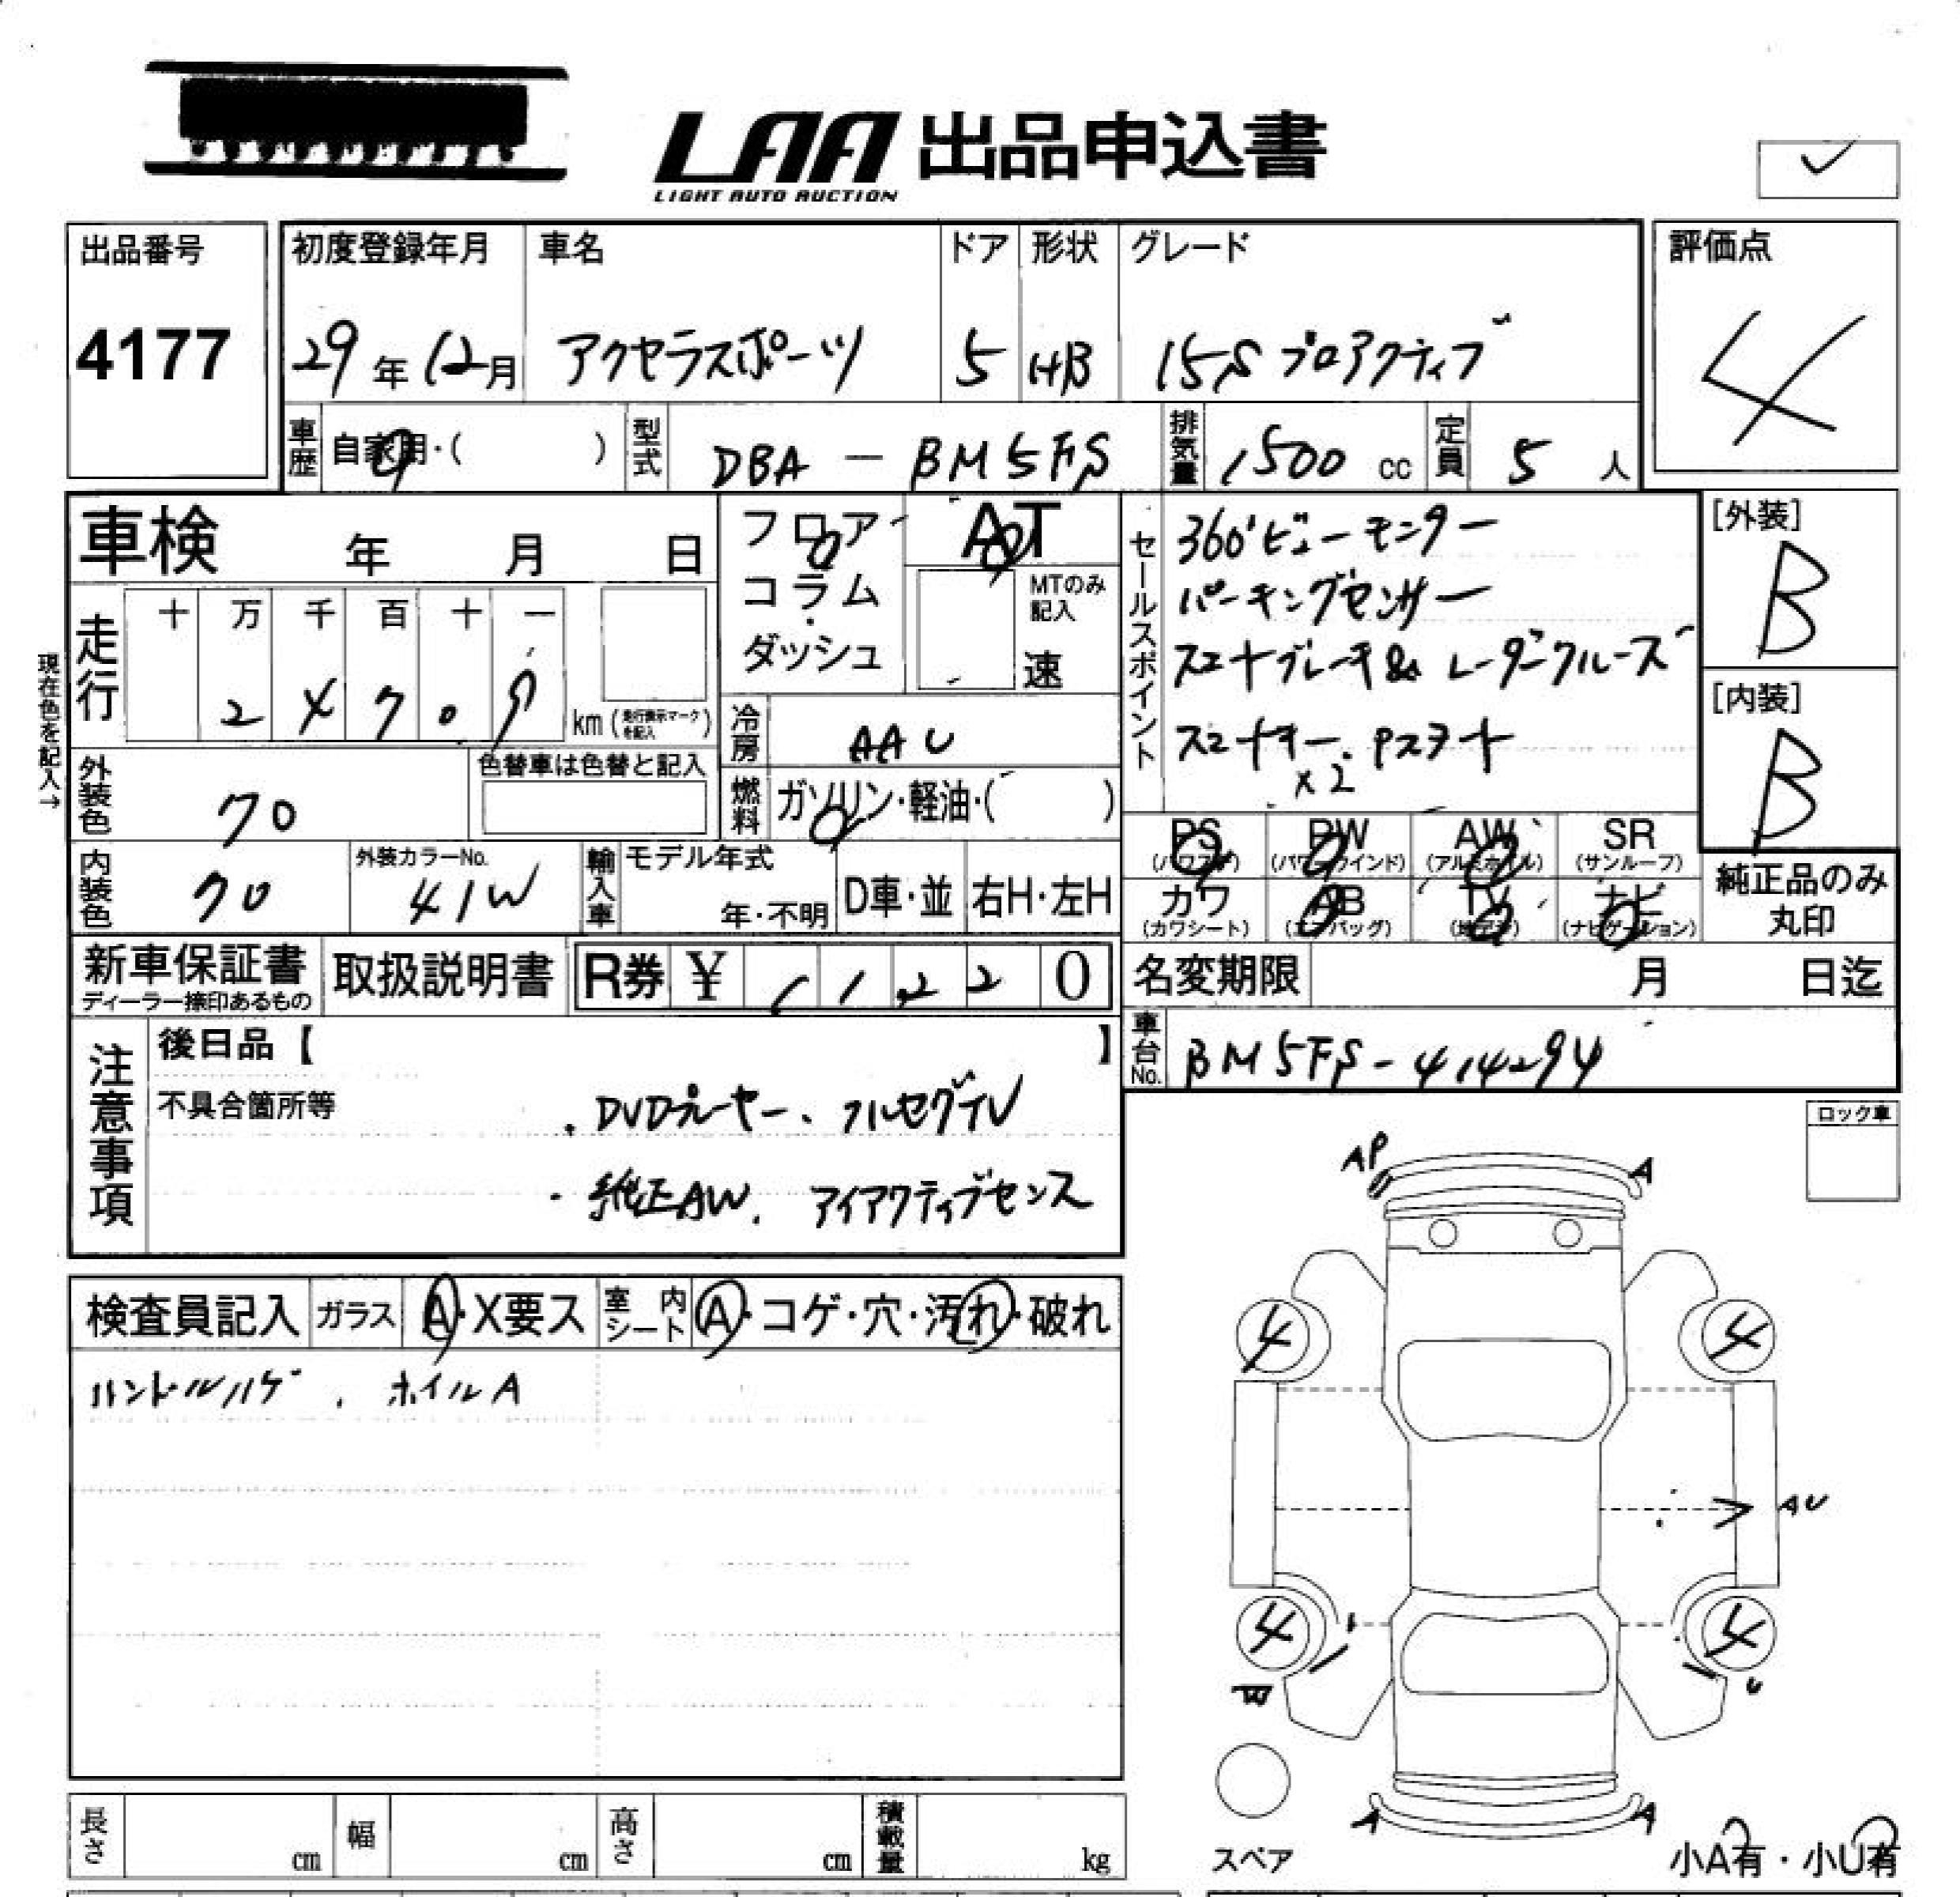 LAA 出品申込書
LIGHT AUTO AUCTION
出品番号
4177
初度登録年月
29年12月
車名
アクセラスポーツ
ドア
5
形状
HB
グレード
15S プロアクティブ
評価点
4
車歴
自家用・( )
型式
DBA - BM5FS
排気量
1500 cc
定員
5 人
車検 年 月 日
フロア
コラム
・
ダッシュ
AT
MTのみ
記入
速
セールスポイント
360°ビューモニター
パーキングセンサー
スマートブレーキ&レーダークルーズ
スマートキー.Pスタート
x2
[外装]
B
[内装]
B
現在色を記入→
走行
十 万 千 百 十 一
km (走行表示マークを記入)
冷房
AAC
外装色
クロ
色替車は色替と記入
燃料
ガソリン・軽油・( )
PS
(パワステ)
PW
(パワーウインド)
AW
(アルミホイル)
SR
(サンルーフ)
カワ
(カワシート)
AB
(エアバッグ)
TV
(地デジ)
ナビ
(ナビゲーション)
純正品のみ
丸印
内装色
クロ
外装カラーNo.
41W
輸入車
モデル年式
年・不明
D車・並
右H・左H
新車保証書
ディーラー捺印あるもの
取扱説明書
R券 ¥ 1 1 2 2 0
名変期限 月 日迄
車台No.
BM5FS-414294
注意事項
後日品【 】
不具合箇所等
・DVDプレーヤー、フルセグTV
・純正AW. アイアクティブセンス
ロック車
AP
A
検査員記入
ガラス
A・X要ス
室内シート
A・コゲ・穴・汚れ・破れ
ハンドルハゲ、ホイルA
4
4
AU
4
4
W
U
A
A
スペア
小A有・小U有
長さ
cm
幅
cm
高さ
cm
積載量
kg